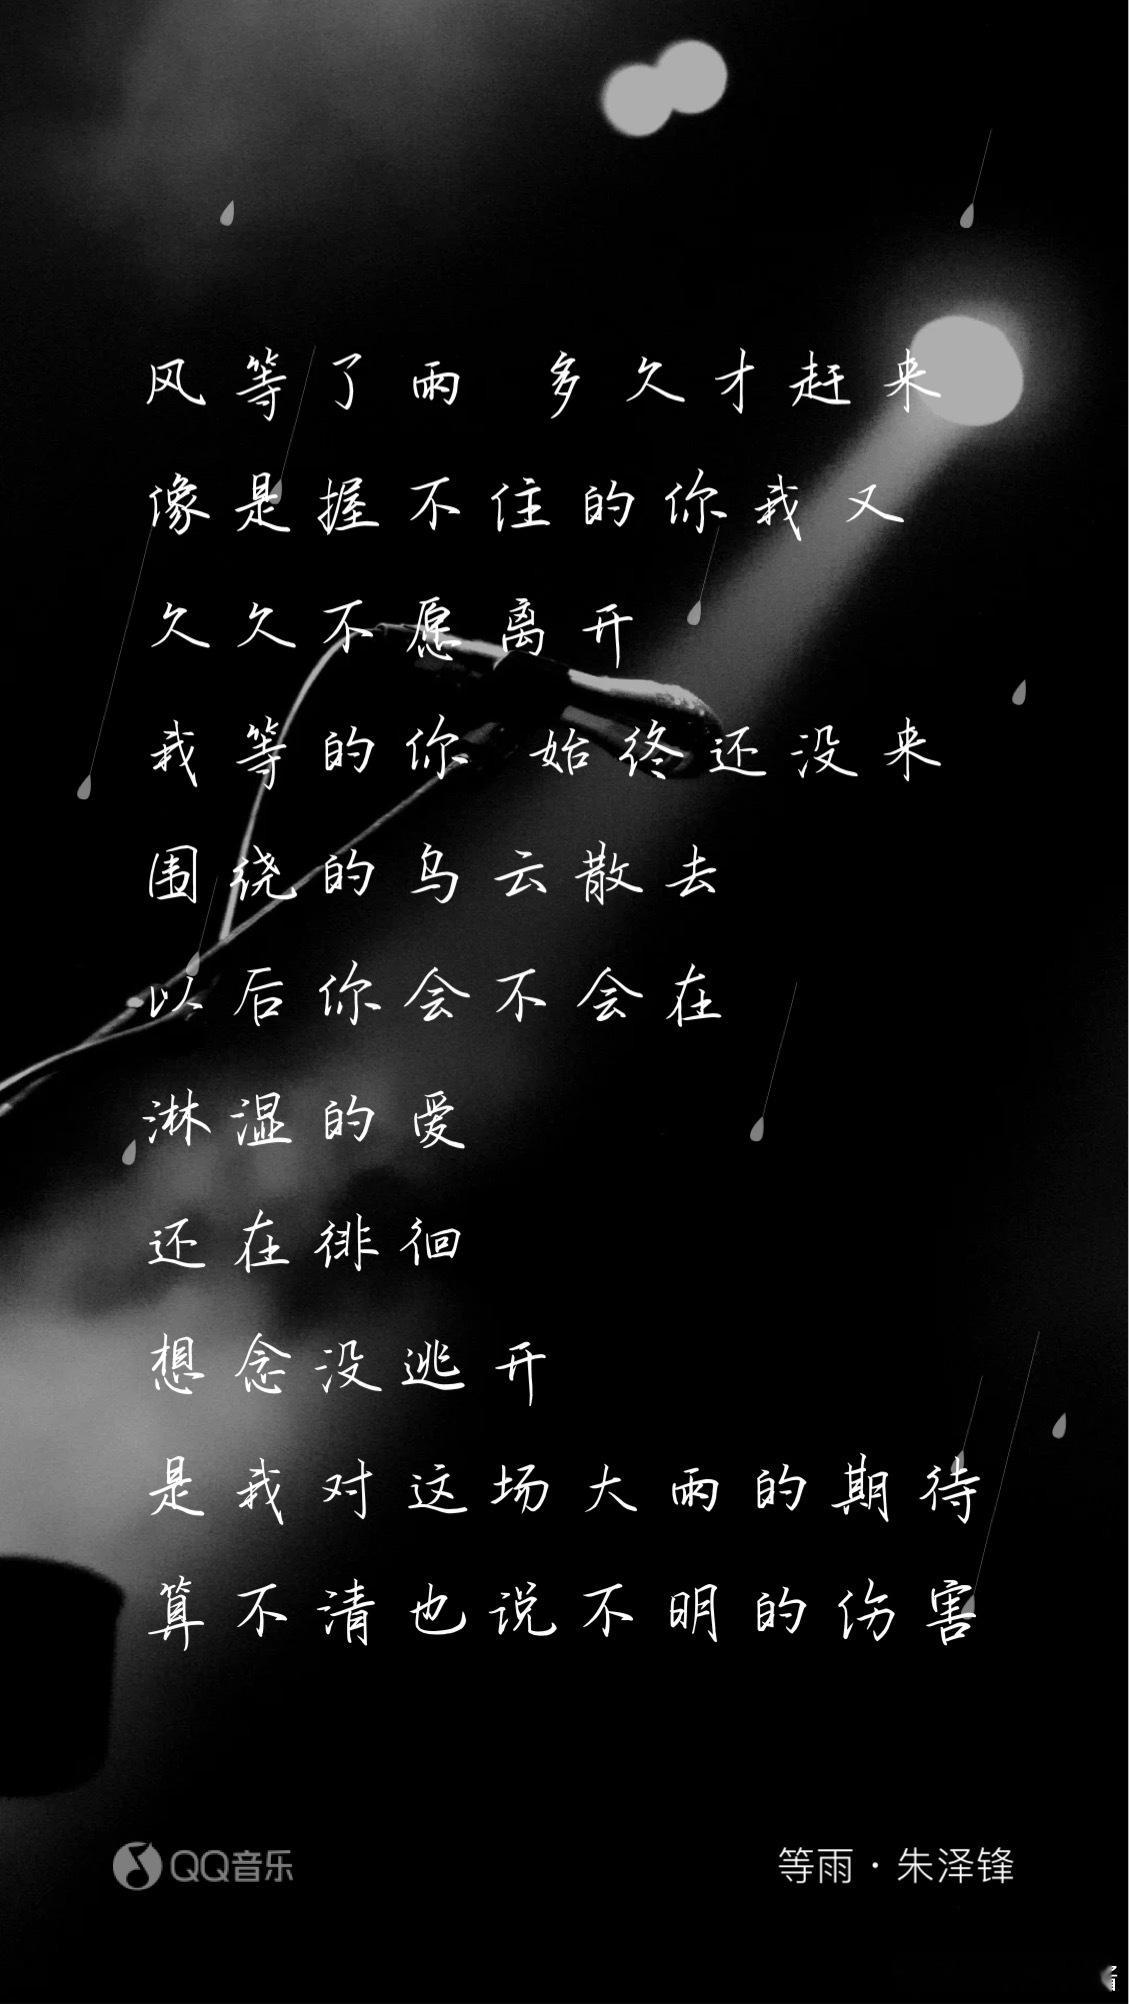 风等了雨 多久才赶来
像是握不住的你我又
久久不愿离开
我等的你 始终还没来
围绕的乌云散去
以后你会不会在
淋湿的爱
还在徘徊
想念没逃开
是我对这场大雨的期待
算不清也说不明的伤害
QQ音乐
等雨·朱泽锋